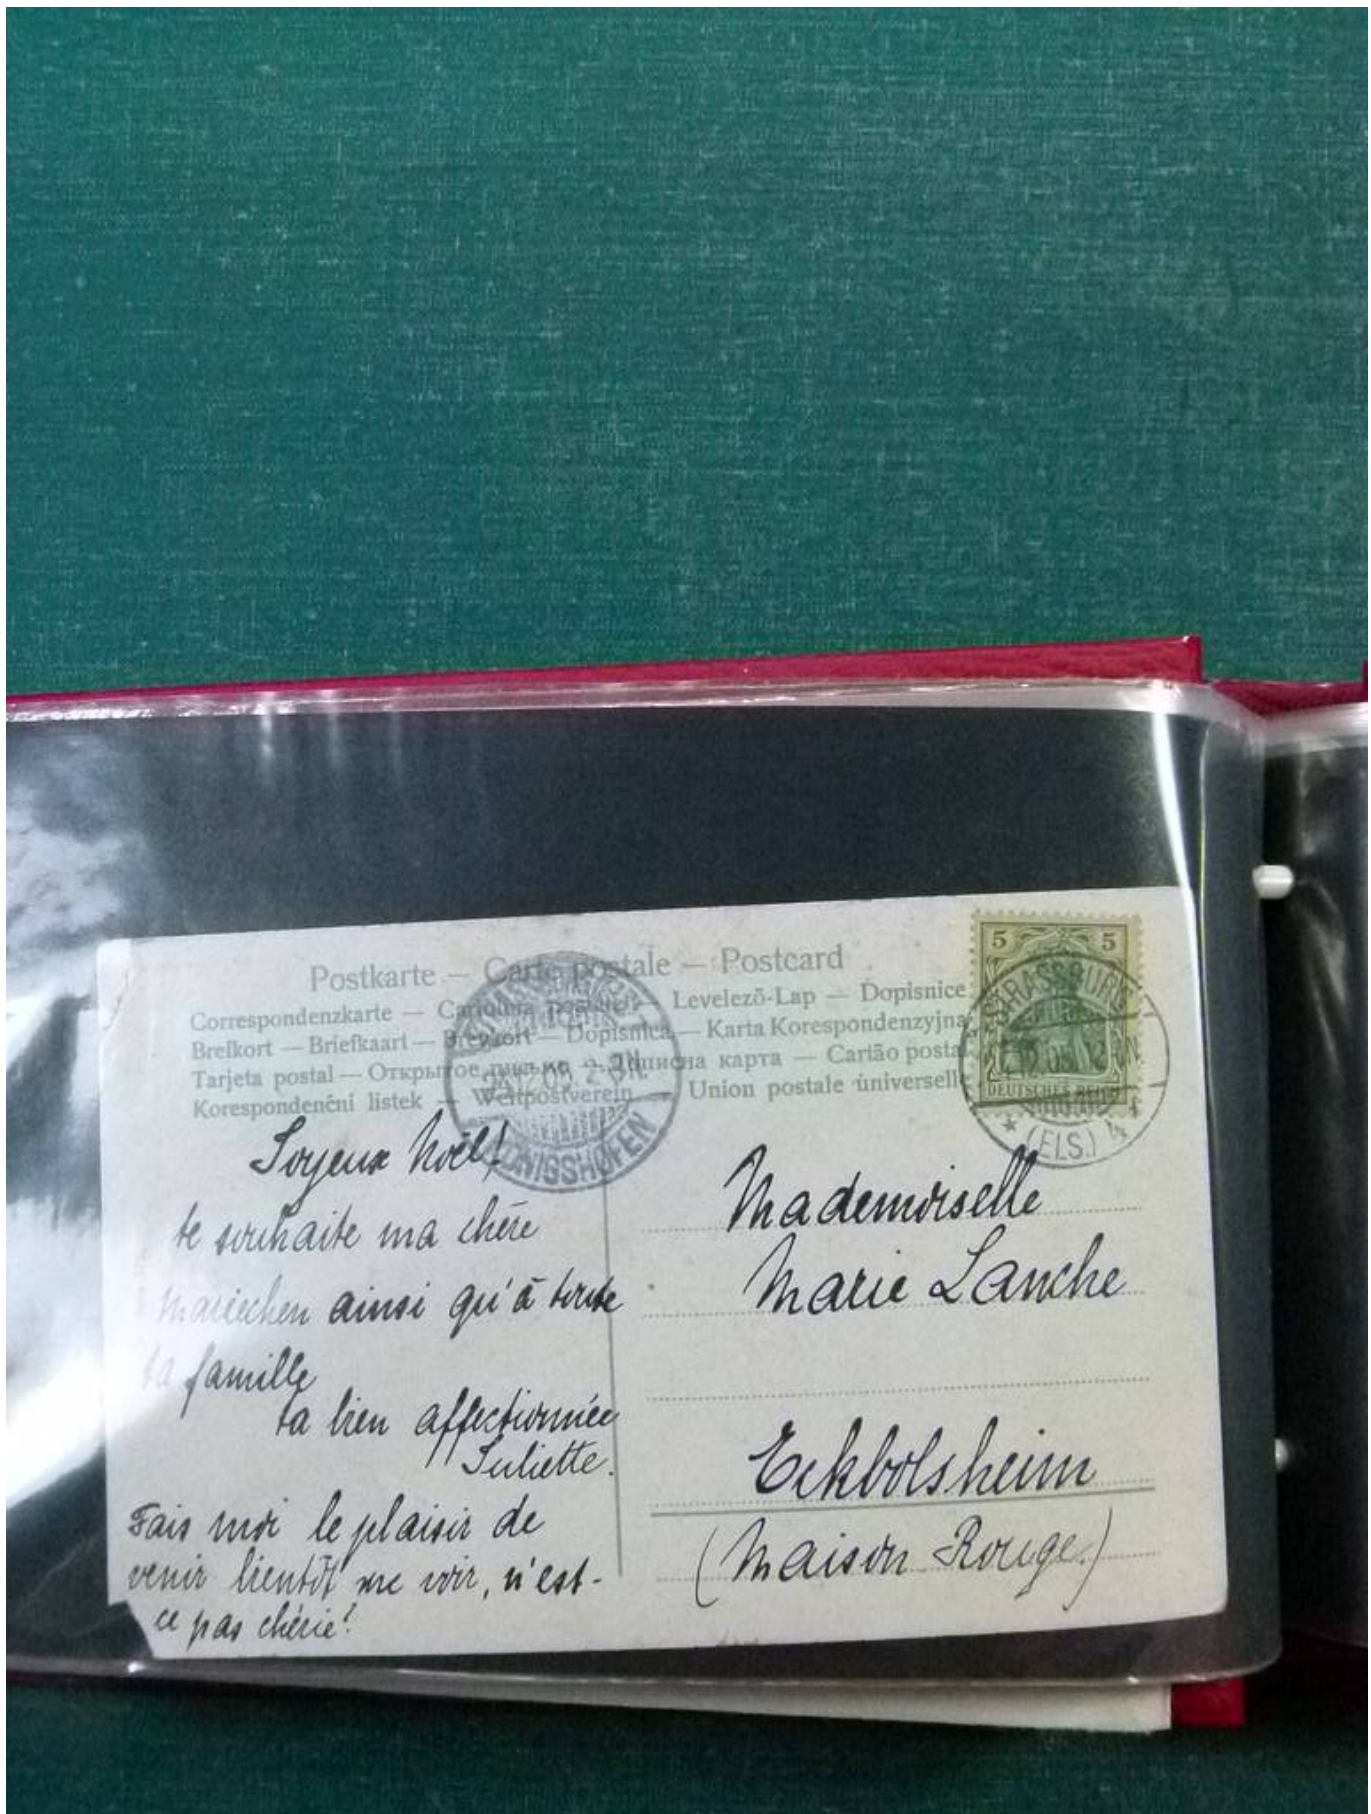 Postkarte — Carte postale — Postcard
Correspondenzkarte — Cartolina postale — Levelező-Lap — Dopisnice
Brefkort — Briefkaart — Brevkort — Dopisnica — Karta Korespondenzyjna
Tarjeta postal — Открытое письмо — Дописна карта — Cartão postal
Korespondenční listek — Weltpostverein — Union postale universelle
5 5
DEUTSCHES REICH
STRASSBURG
(ELS.) 4
KÖNIGSHOFEN
Joyeux Noël!
te souhaite ma chère
Mariechen ainsi qu'à toute
ta famille
ta bien affectionnée
Juliette.
Fais moi le plaisir de
venir bientôt me voir, n'est-
ce pas chérie!
Mademoiselle
Marie Lanche
Eckbolsheim
(Maison Rouge.)